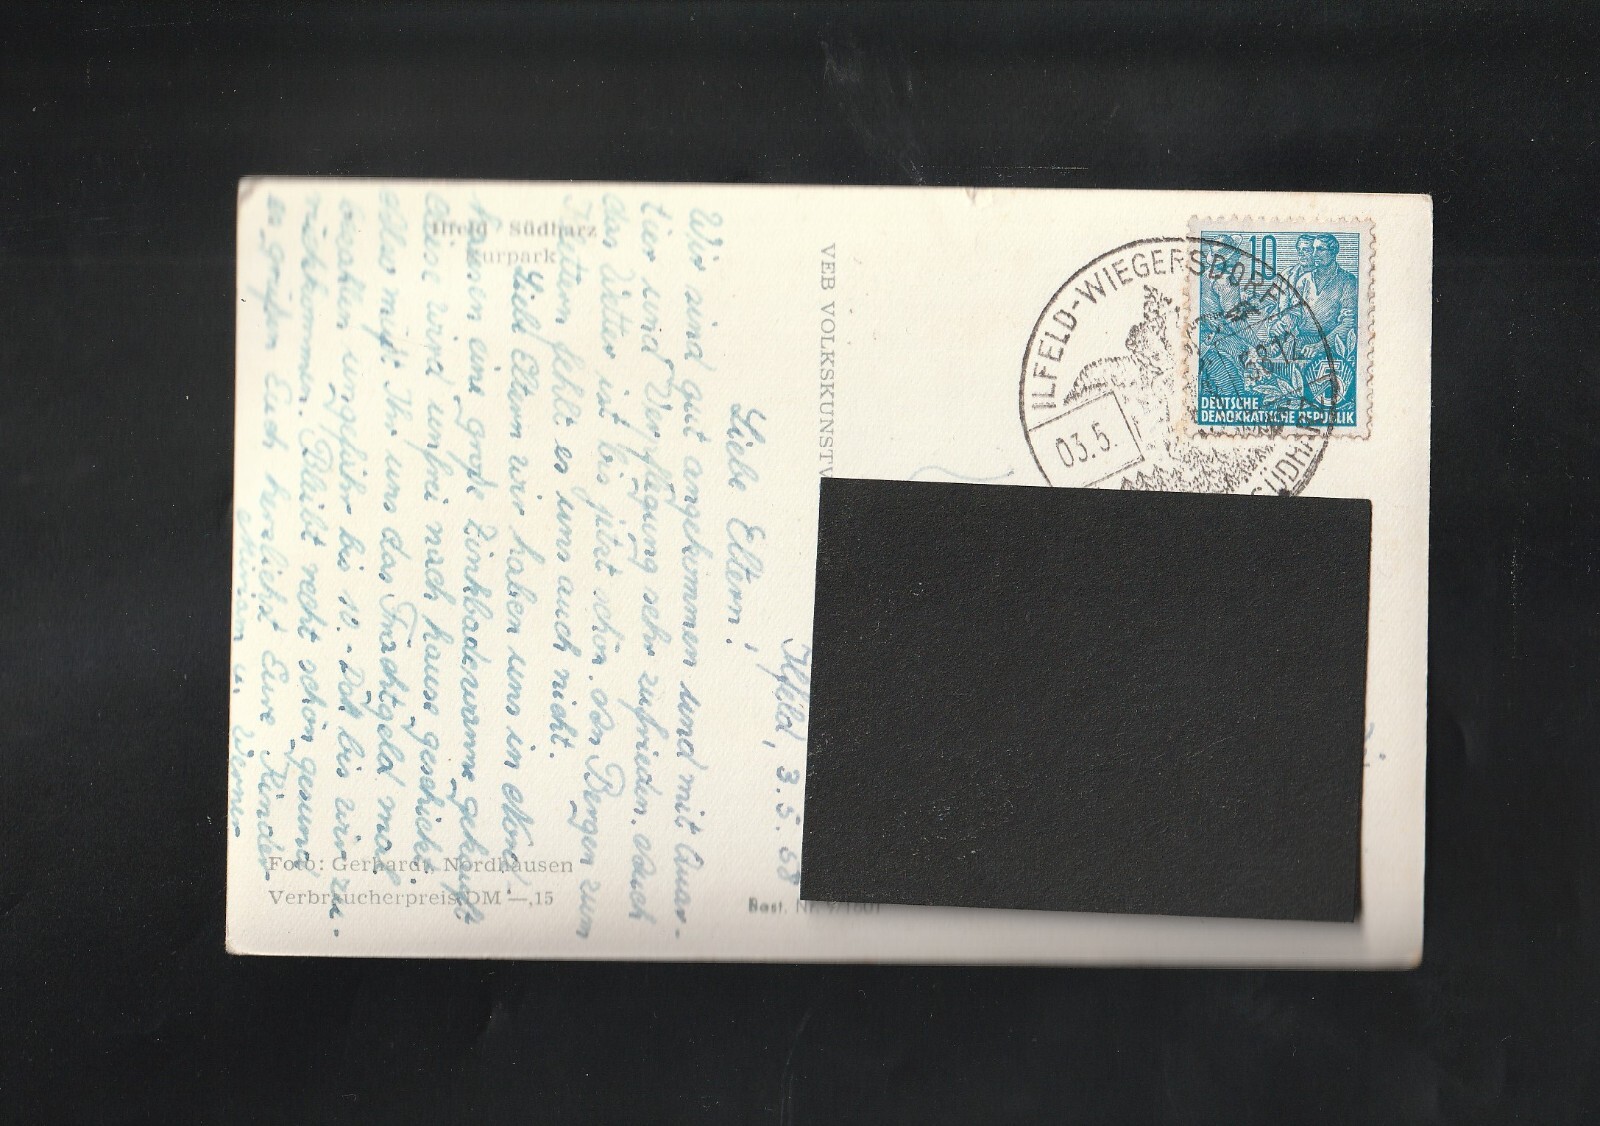 Ilfeld Südharz
Kurpark
Ilfeld, 3.5.58
Liebe Eltern!
Wir sind gut angekommen und mit Quar-
tier und Verpflegung sehr zufrieden. Auch
das Wetter ist bis jetzt schön. An Bergen zum
Klettern fehlt es uns auch nicht.
Liebe Eltern wir haben uns in Nord-
hausen eine große Zinkbadewanne gekauft
diese wird unfrei nach hause geschickt.
Also müßt Ihr uns das Frachtgeld mal
bezahlen ungefähr bis 10.- DM bis wir zu-
rückkommen. Bleibt recht schön gesund
es grüßen Euch herzlichst Eure Kinder
u. Werner
Foto: Gerhardt, Nordhausen
Verbraucherpreis DM —,15
VEB VOLKSKUNSTV
Best. Nr.
ILFELD-WIEGERSDORF
03.5.
58-12
SÜDHARZ
10
DEUTSCHE
DEMOKRATISCHE REPUBLIK